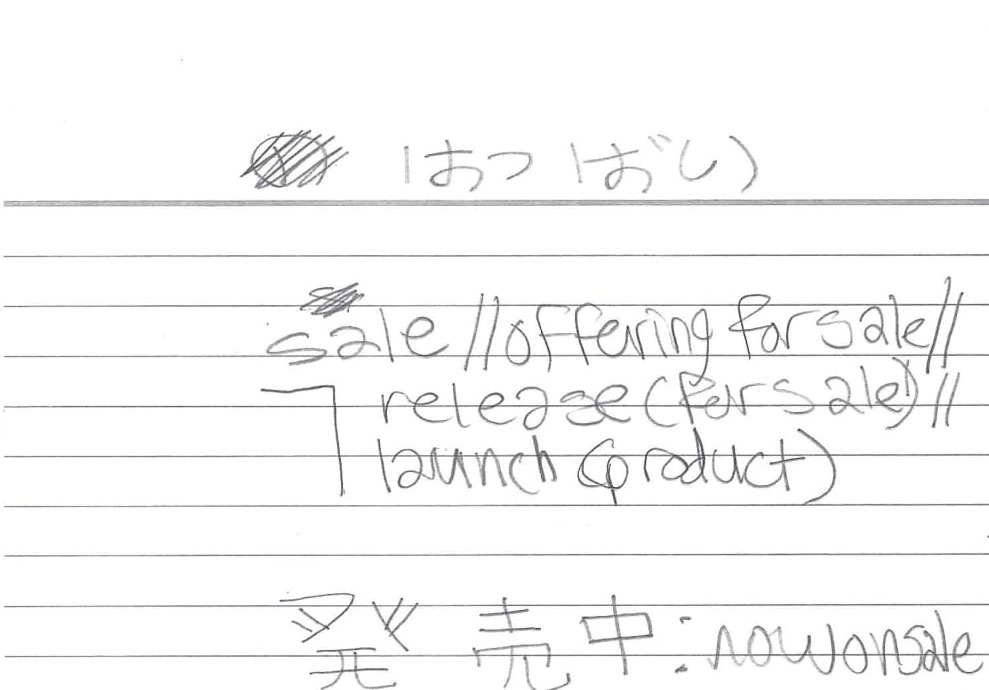 はつばい
sale // offering for sale //
release (for sale) //
launch (product)
発売中: now on sale